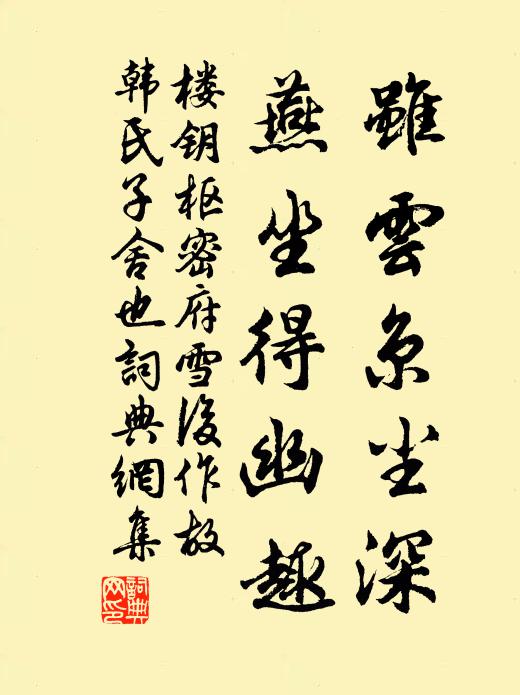 雖雲京尘深
燕坐得幽趣
楼钥枢密府雪後作故
韩氏子舍也詞典網集